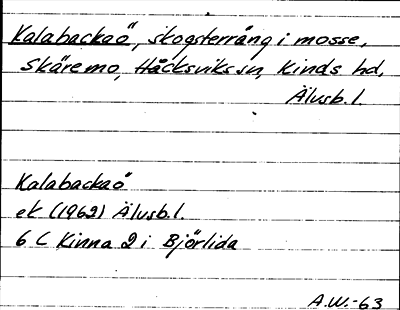 Kalabackaö, skogsterräng i mosse,
Skäremo, Håcksviks sn, Kinds hd,
Älvsb.l.
Kalabackaö
ek (1962) Älvsb.l.
6 C Kinna 2 i Björlida
A.W.-63